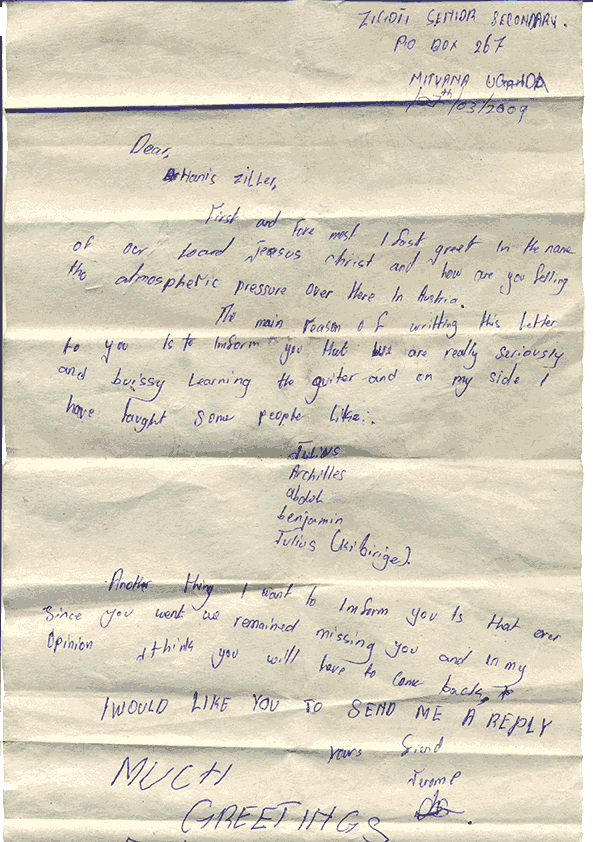 ZIGOTI SENIOR SECONDARY.
PO BOX 267
MITYANA UGANDA
/07th/03/2009
Dear,
Hanis ziller,
First and fore most I fast greet in the name
of our Load Jeasus christ and how are you felling
the atmospheric pressure over there In Austria.
The main reason of writting this letter
to you Is to Imform you that we are really seriously
and buissy learning the guiter and on my side I
have taught some people like:.
Julius
Archilles
abdul
benjamin
Julius (kibirige).
Another thing I want to Imform you Is that ever
since you went we remained missing you and in my
Opinion I think you will have to come back,
I WOULD LIKE YOU TO SEND ME A REPLY
yours friend
Jerome
MUCH
GREETINGS